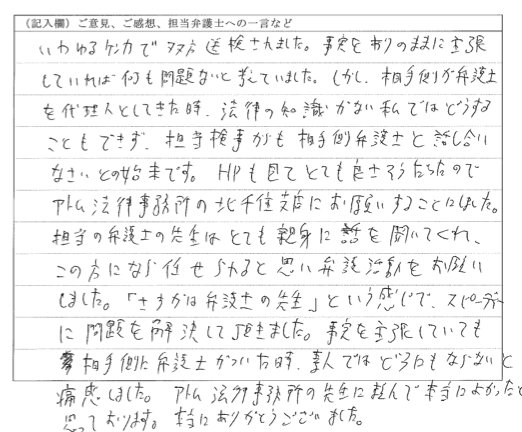 （記入欄）ご意見、ご感想、担当弁護士への一言など
いわゆるケンカで双方送検されました。事実をありのままに主張
していれば何も問題ないと考えていました。しかし、相手側が弁護士
を代理人としてきた時、法律の知識がない私ではどうする
こともできず、担当検事からも相手側弁護士と話し合い
なさいとの始末です。HPも見てとても良さそうだったので
アトム法律事務所の北千住支店にお願いすることにしました。
担当の弁護士の先生はとても親身に話を聞いてくれ、
この方になら任せられると思い弁護活動をお願い
しました。「さすがは弁護士の先生」という感じで、スピーディー
に問題を解決して頂きました。事実を主張していても
相手側に弁護士がついた時、素人ではどうにもならないと
痛感しました。アトム法律事務所の先生に頼んで本当によかったと
思っております。本当にありがとうございました。